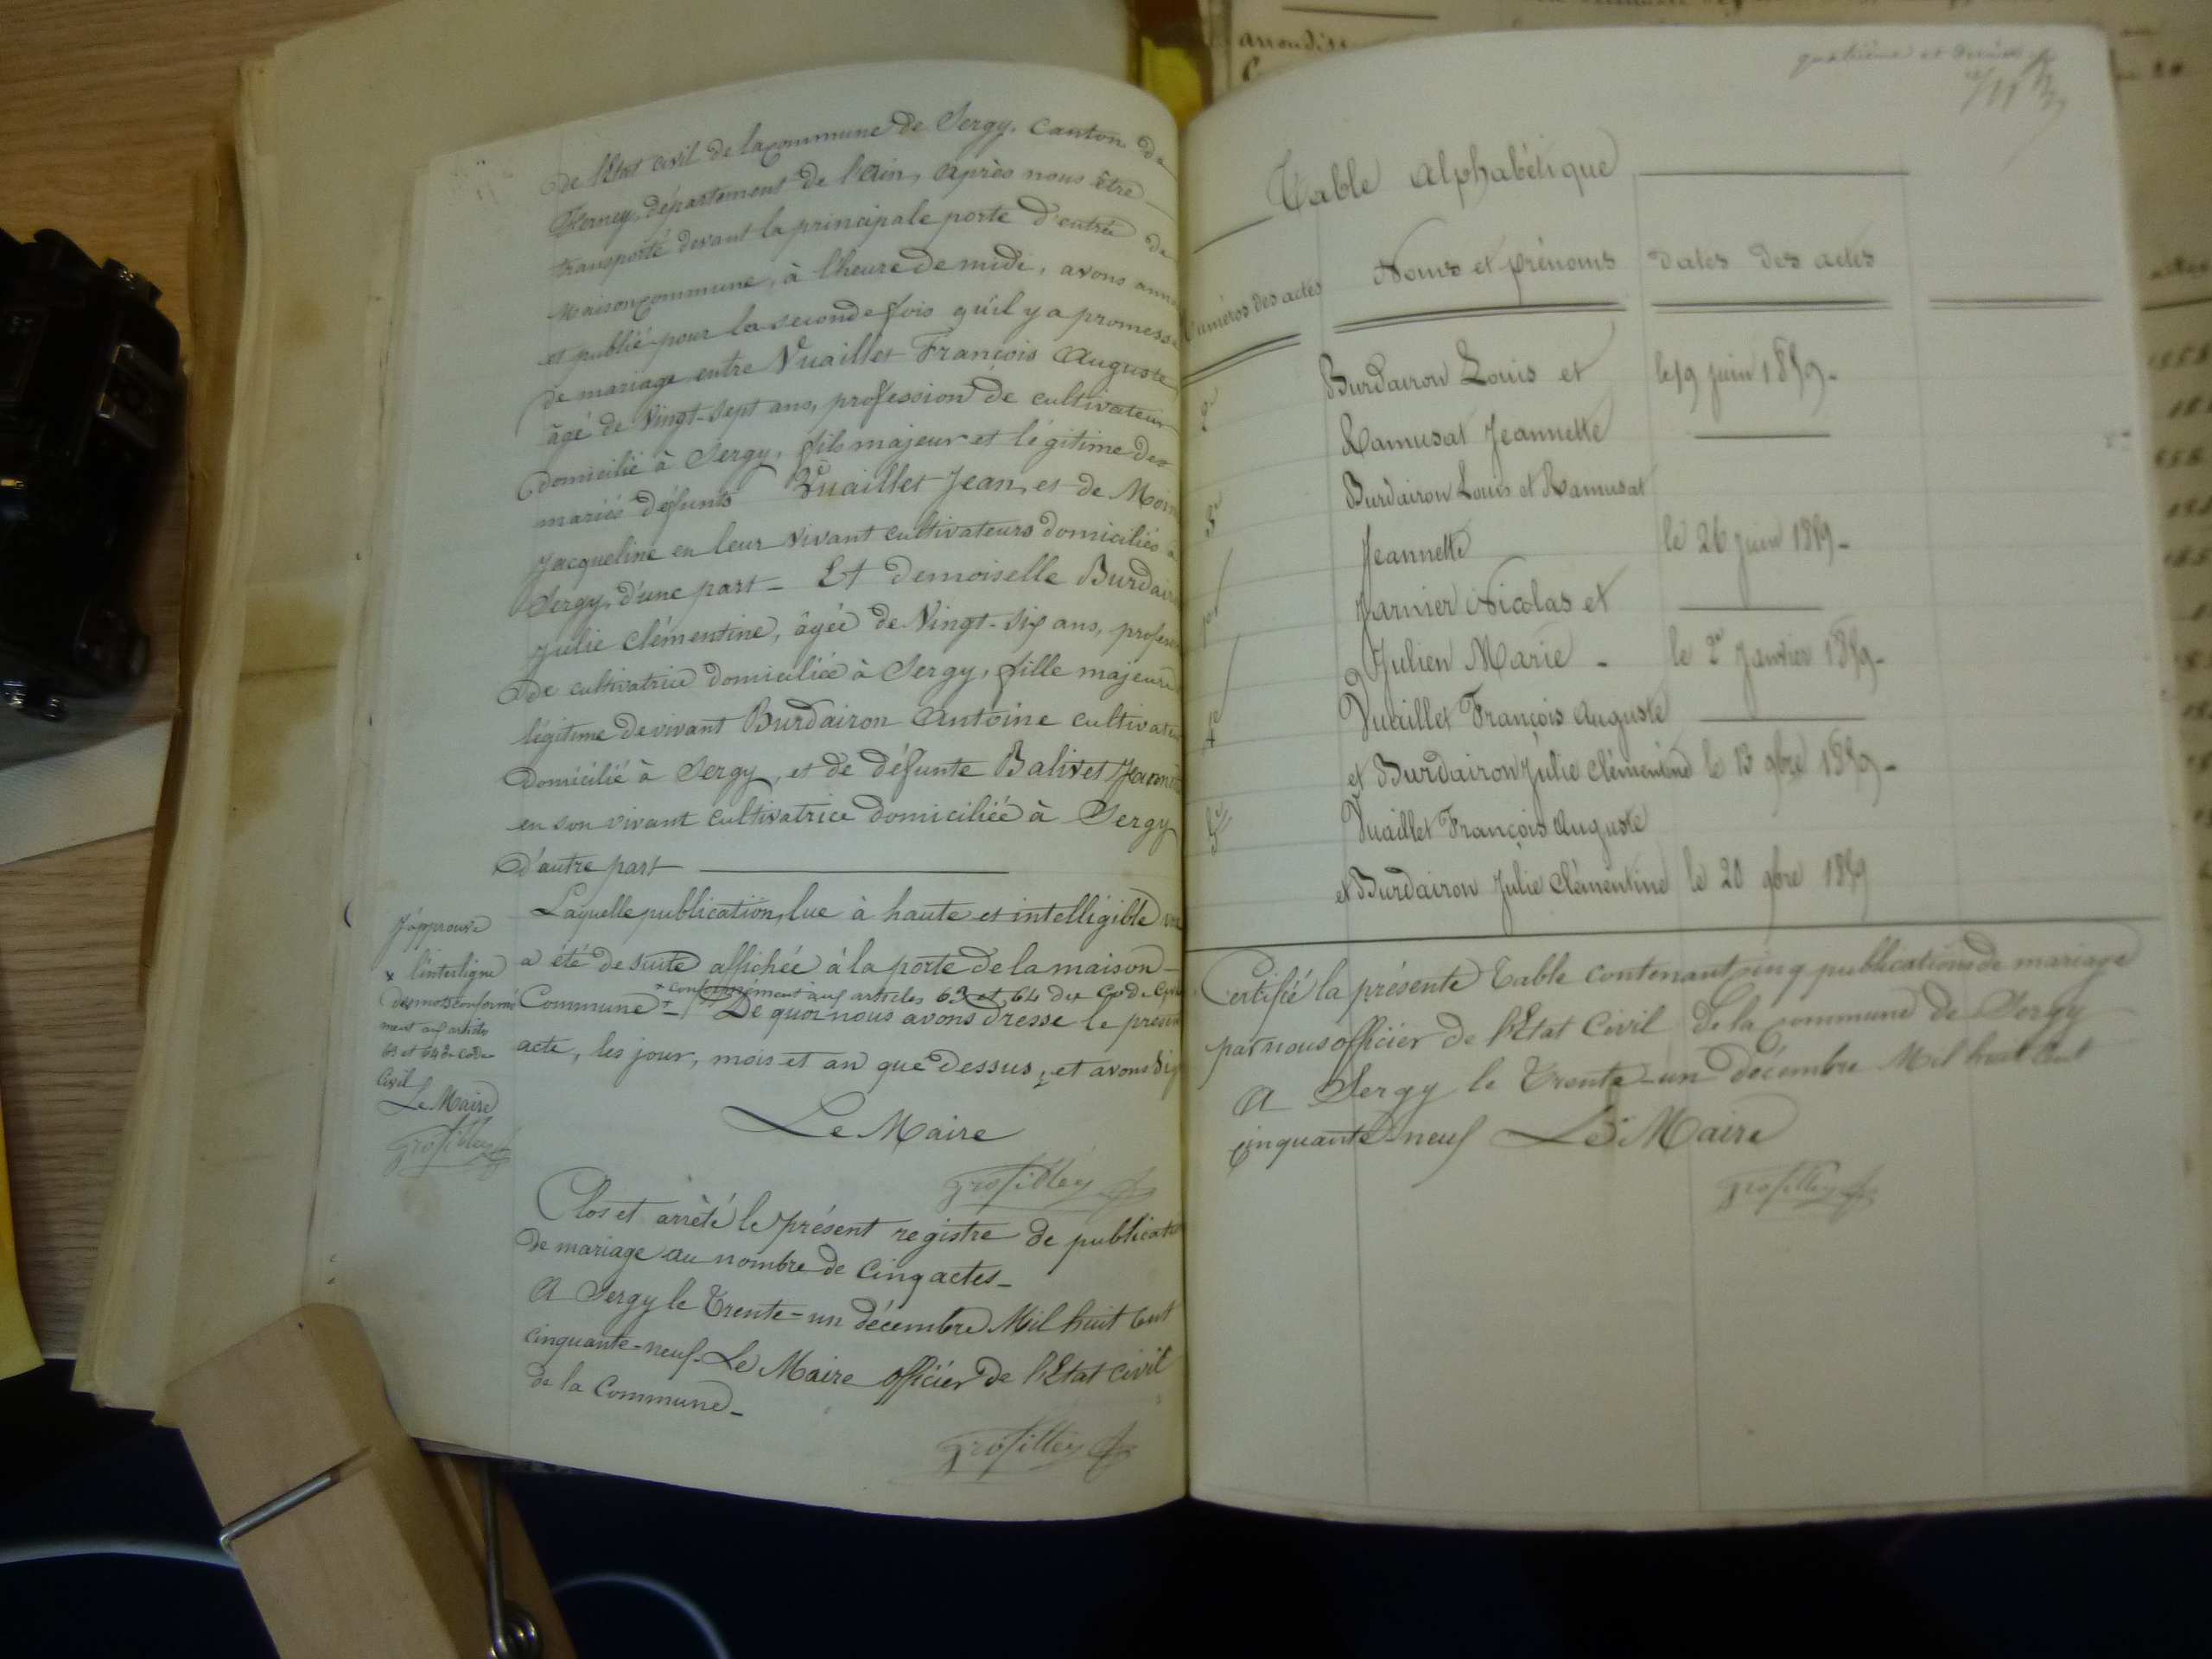 de l'Etat civil de la commune de Sergy, canton de
Ferney, département de l'ain, après nous être
transporté devant la principale porte d'entrée de
maison commune, à l'heure de midi, avons anno
et publié pour la seconde fois qu'il y a promesse
de mariage entre Vuaillet François Auguste
âgé de Vingt-sept ans, profession de cultivateur
domicilié à Sergy, fils majeur et légitime des
mariés défunts Vuaillet Jean, et de
Jacqueline en leur vivant cultivateurs domiciliés à
Sergy, d'une part - Et demoiselle Burdairon
Julie Clémentine, âgée de Vingt-six ans, profession
de cultivatrice domiciliée à Sergy, fille majeure
légitime de vivant Burdairon Antoine cultivateur
domicilié à Sergy, et de défunte Balivet
en son vivant cultivatrice domiciliée à Sergy
d'autre part
Laquelle publication, lue à haute et intelligible voix
a été de suite affichée à la porte de la maison -
* conformément aux articles 63 et 64 du Code Civil
Commune * - De quoi nous avons dressé le présent
acte, les jour, mois et an que dessus, et avons sig
J'approuve
* l'interligne
des mots conformé
ment aux articles
63 et 64 du code
Civil
Le Maire
Grosfilley
Le Maire
Grosfilley
Clos et arrêté le présent registre de publication
de mariage au nombre de cinq actes -
A Sergy le Trente-un décembre Mil huit Cent
cinquante-neuf. Le Maire officier de l'Etat civil
de la Commune -
Grosfilley
quatrième et dernier
Table Alphabétique
Numéros des actes
Noms et prénoms
Dates des actes
2e Burdairon Louis et le 19 juin 1859 -
Ramusat Jeannette
3e Burdairon Louis et Ramusat
Jeannette le 26 juin 1859 -
1er Jarnier Nicolas et
Julien Marie - le 2e Janvier 1859 -
4e Vuaillet François Auguste
et Burdairon Julie Clémentine le 13 9bre 1859 -
5e Vuaillet François Auguste
et Burdairon Julie Clémentine le 20 9bre 1859
Certifié la présente Table contenant cinq publications de mariage
par nous officier de l'Etat Civil de la commune de Sergy
A Sergy le Trente-un décembre Mil huit Cent
cinquante-neuf Le Maire
Grosfilley